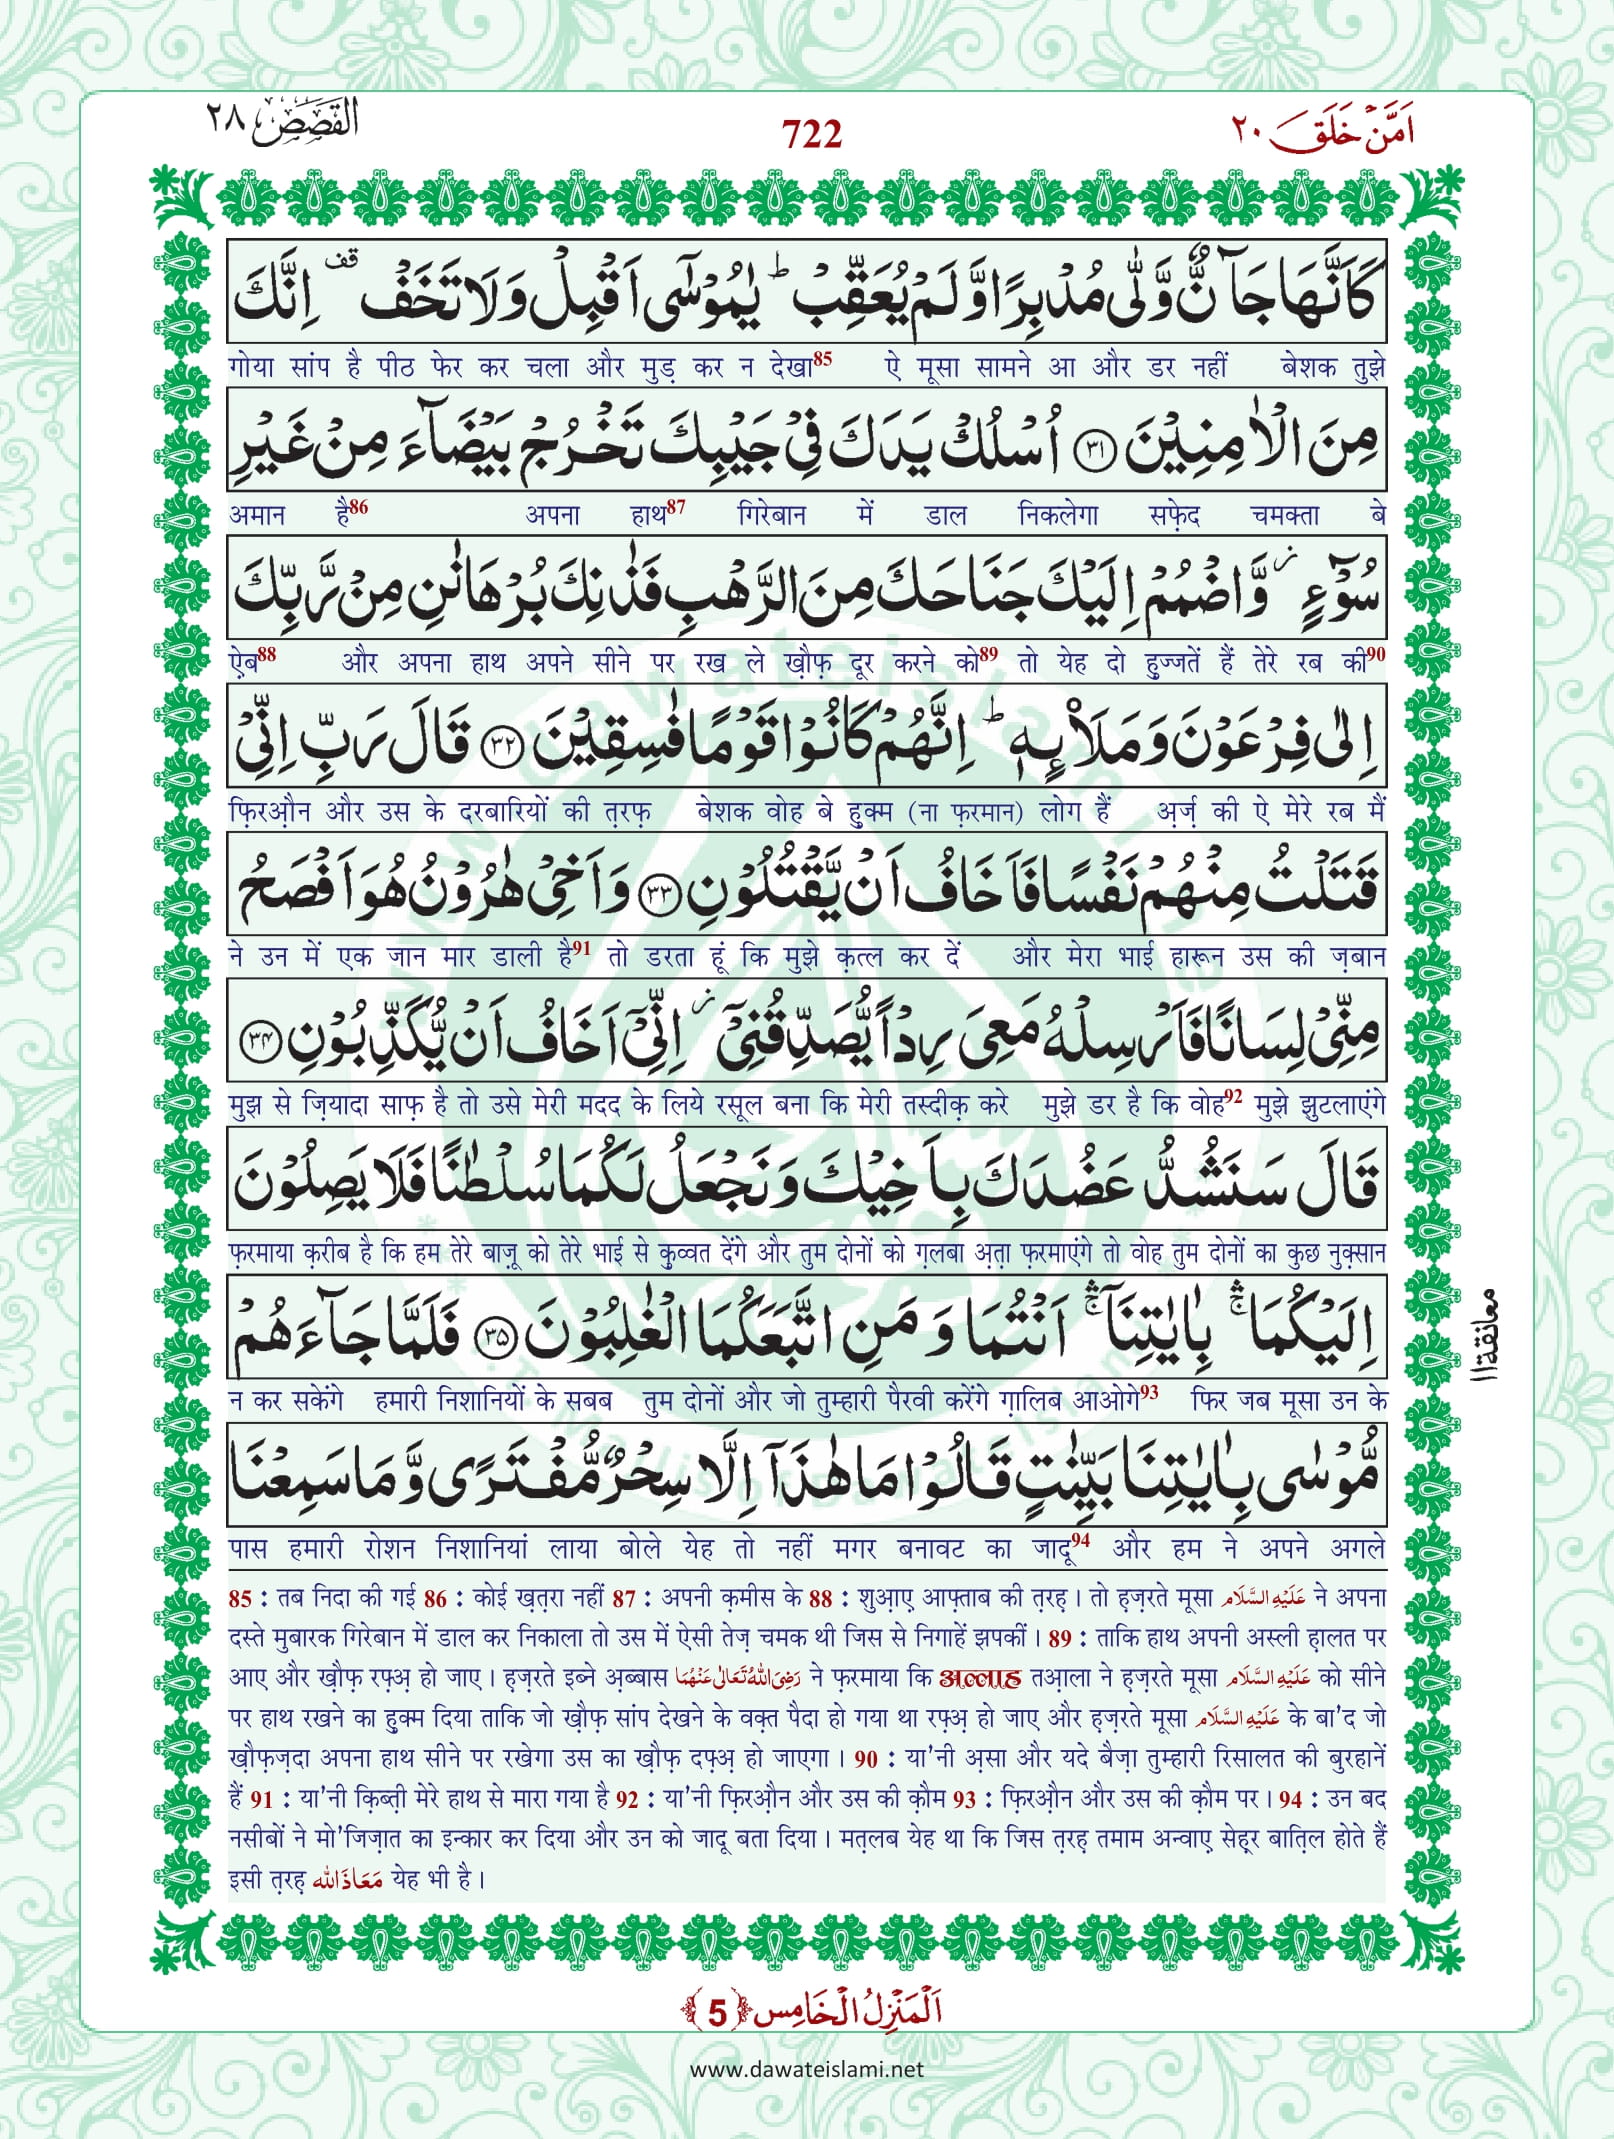 القصص ٢٨
722
اَمَّنْ خَلَقَ ٢٠
كَاَنَّهَا جَآنٌّ وَّلّٰى مُدْبِرًا وَّلَمْ یُعَقِّبْؕ یٰمُوْسٰۤى اَقْبِلْ وَ لَا تَخَفْ۫ اِنَّكَ
गोया सांप है पीठ फेर कर चला और मुड़ कर न देखा85 ऐ मूसा सामने आ और डर नहीं बेशक तुझे
مِنَ الْاٰمِنِیْنَ(۳۱) اُسْلُكْ یَدَكَ فِیْ جَیْبِكَ تَخْرُ جْ بَیْضَآءَ مِنْ غَیْرِ
अमान है86 अपना हाथ87 गिरेबान में डाल निकलेगा सफ़ेद चमक्ता बे
سُوْٓءٍ٘ وَّ اضْمُمْ اِلَیْكَ جَنَاحَكَ مِنَ الرَّهْبِ فَذٰنِكَ بُرْهَانٰنِ مِنْ رَّبِّكَ
ऐब88 और अपना हाथ अपने सीने पर रख ले ख़ौफ़ दूर करने को89 तो येह दो हुज्जतें हैं तेरे रब की90
اِلٰى فِرْعَوْنَ وَ مَلَاۡىٕهٖؕ اِنَّهُمْ كَانُوْا قَوْمًا فٰسِقِیْنَ(۳۲) قَالَ رَبِّ اِنِّیْ
फ़िरऔ़न और उस के दरबारियों की त़रफ़ बेशक वोह बे हुक्म (ना फ़रमान) लोग हैं अ़र्ज़ की ऐ मेरे रब मैं
قَتَلْتُ مِنْهُمْ نَفْسًا فَاَخَافُ اَنْ یَّقْتُلُوْنِ(۳۳) وَ اَخِیْ هٰرُوْنُ هُوَ اَفْصَحُ
ने उन में एक जान मार डाली है91 तो डरता हूं कि मुझे क़त्ल कर दें और मेरा भाई हारून उस की ज़बान
مِنِّیْ لِسَانًا فَاَرْسِلْهُ مَعِیَ رِدْاً یُّصَدِّقُنِیْۤ٘ اِنِّیْۤ اَخَافُ اَنْ یُّكَذِّبُوْنِ(۳۴)
मुझ से ज़ियादा साफ़ है तो उसे मेरी मदद के लिये रसूल बना कि मेरी तस्दीक़ करे मुझे डर है कि वोह92 मुझे झुटलाएंगे
قَالَ سَنَشُدُّ عَضُدَكَ بِاَخِیْكَ وَ نَجْعَلُ لَكُمَا سُلْطٰنًا فَلَا یَصِلُوْنَ
फ़रमाया क़रीब है कि हम तेरे बाज़ू को तेरे भाई से कुव्वत देंगे और तुम दोनों को ग़लबा अ़त़ा फ़रमाएंगे तो वोह तुम दोनों का कुछ नुक़्सान
اِلَیْكُمَاۚۛ بِاٰیٰتِنَاۤۚۛ اَنْتُمَا وَ مَنِ اتَّبَعَكُمَا الْغٰلِبُوْنَ(۳۵) فَلَمَّا جَآءَهُمْ
معانقة ١١
न कर सकेंगे हमारी निशानियों के सबब तुम दोनों और जो तुम्हारी पैरवी करेंगे ग़ालिब आओगे93 फिर जब मूसा उन के
مُّوْسٰى بِاٰیٰتِنَا بَیِّنٰتٍ قَالُوْا مَا هٰذَاۤ اِلَّا سِحْرٌ مُّفْتَرًى وَّ مَا سَمِعْنَا
पास हमारी रोशन निशानियां लाया बोले येह तो नहीं मगर बनावट का जादू94 और हम ने अपने अगले
85 : तब निदा की गई 86 : कोई ख़त़रा नहीं 87 : अपनी क़मीस के 88 : शुआ़ए आफ़्ताब की त़रह़ । तो ह़ज़रते मूसा عَلَيْهِ السَّلَام ने अपना
दस्ते मुबारक गिरेबान में डाल कर निकाला तो उस में ऐसी तेज़ चमक थी जिस से निगाहें झपकीं । 89 : ताकि हाथ अपनी अस्ली ह़ालत पर
आए और ख़ौफ़ रफ़्अ़ हो जाए । ह़ज़रते इब्ने अ़ब्बास رَضِيَ اللهُ تَعَالٰى عَنْهُمَا ने फ़रमाया कि अल्लाह तआ़ला ने ह़ज़रते मूसा عَلَيْهِ السَّلَام को सीने
पर हाथ रखने का हुक्म दिया ताकि जो ख़ौफ़ सांप देखने के वक़्त पैदा हो गया था रफ़्अ़ हो जाए और ह़ज़रते मूसा عَلَيْهِ السَّلَام के बा'द जो
ख़ौफ़ज़दा अपना हाथ सीने पर रखेगा उस का ख़ौफ़ दफ़्अ़ हो जाएगा । 90 : या'नी अ़सा और यदे बैज़ा तुम्हारी रिसालत की बुरहानें
हैं 91 : या'नी क़िब्त़ी मेरे हाथ से मारा गया है 92 : या'नी फ़िरऔ़न और उस की क़ौम 93 : फ़िरऔ़न और उस की क़ौम पर । 94 : उन बद
नसीबों ने मो'जिज़ात का इन्कार कर दिया और उन को जादू बता दिया । मत़लब येह था कि जिस त़रह़ तमाम अन्वाए सेह़र बात़िल होते हैं
इसी त़रह़ مَعَاذَ الله येह भी है ।
اَلْمَنْزِلُ الْخَامِس ﴿5﴾
www.dawateislami.net